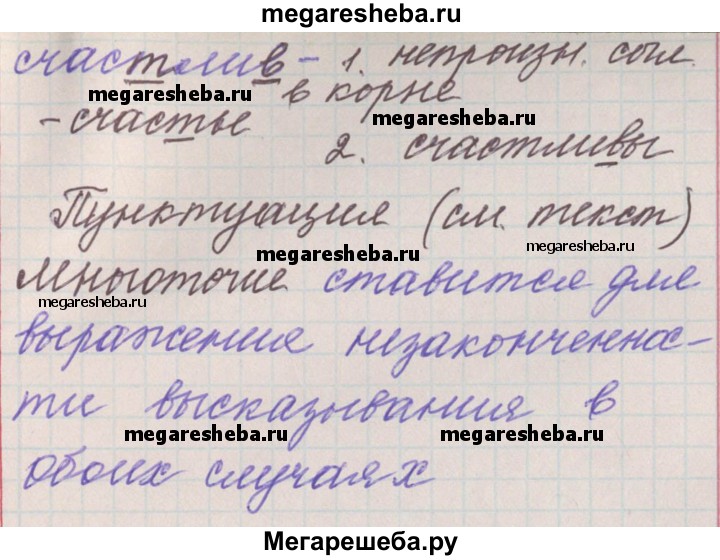 megaresheba.ru
счастлив - 1. непроизн. согл.
megaresheba.ru в корне megaresheba.ru
- счастье
2. счастливы
Пунктуация (см. текст)
megaresheba.ru megaresheba.ru
Многоточие ставится для
megaresheba.ru
выражения незаконченнос-
ти высказывания в
megaresheba.ru megaresheba.ru
обоих случаях
Мегарешеба.ру